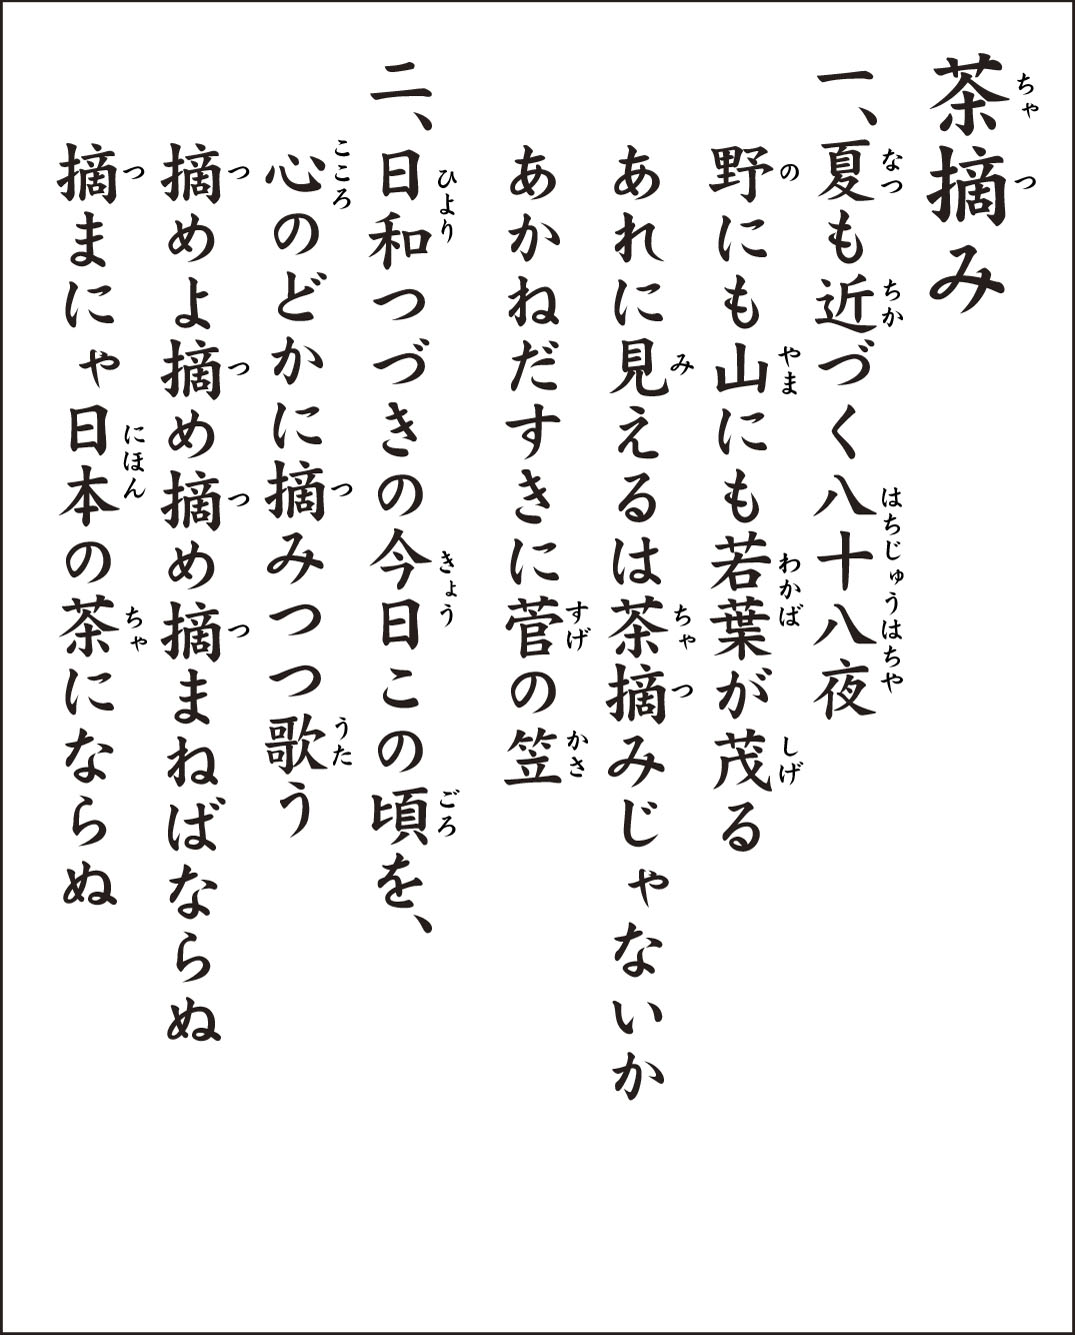 茶摘み
一、夏も近づく八十八夜
野にも山にも若葉が茂る
あれに見えるは茶摘みじゃないか
あかねだすきに菅の笠
二、日和つづきの今日この頃を、
心のどかに摘みつつ歌う
摘めよ摘め摘め摘まねばならぬ
摘まにゃ日本の茶にならぬ